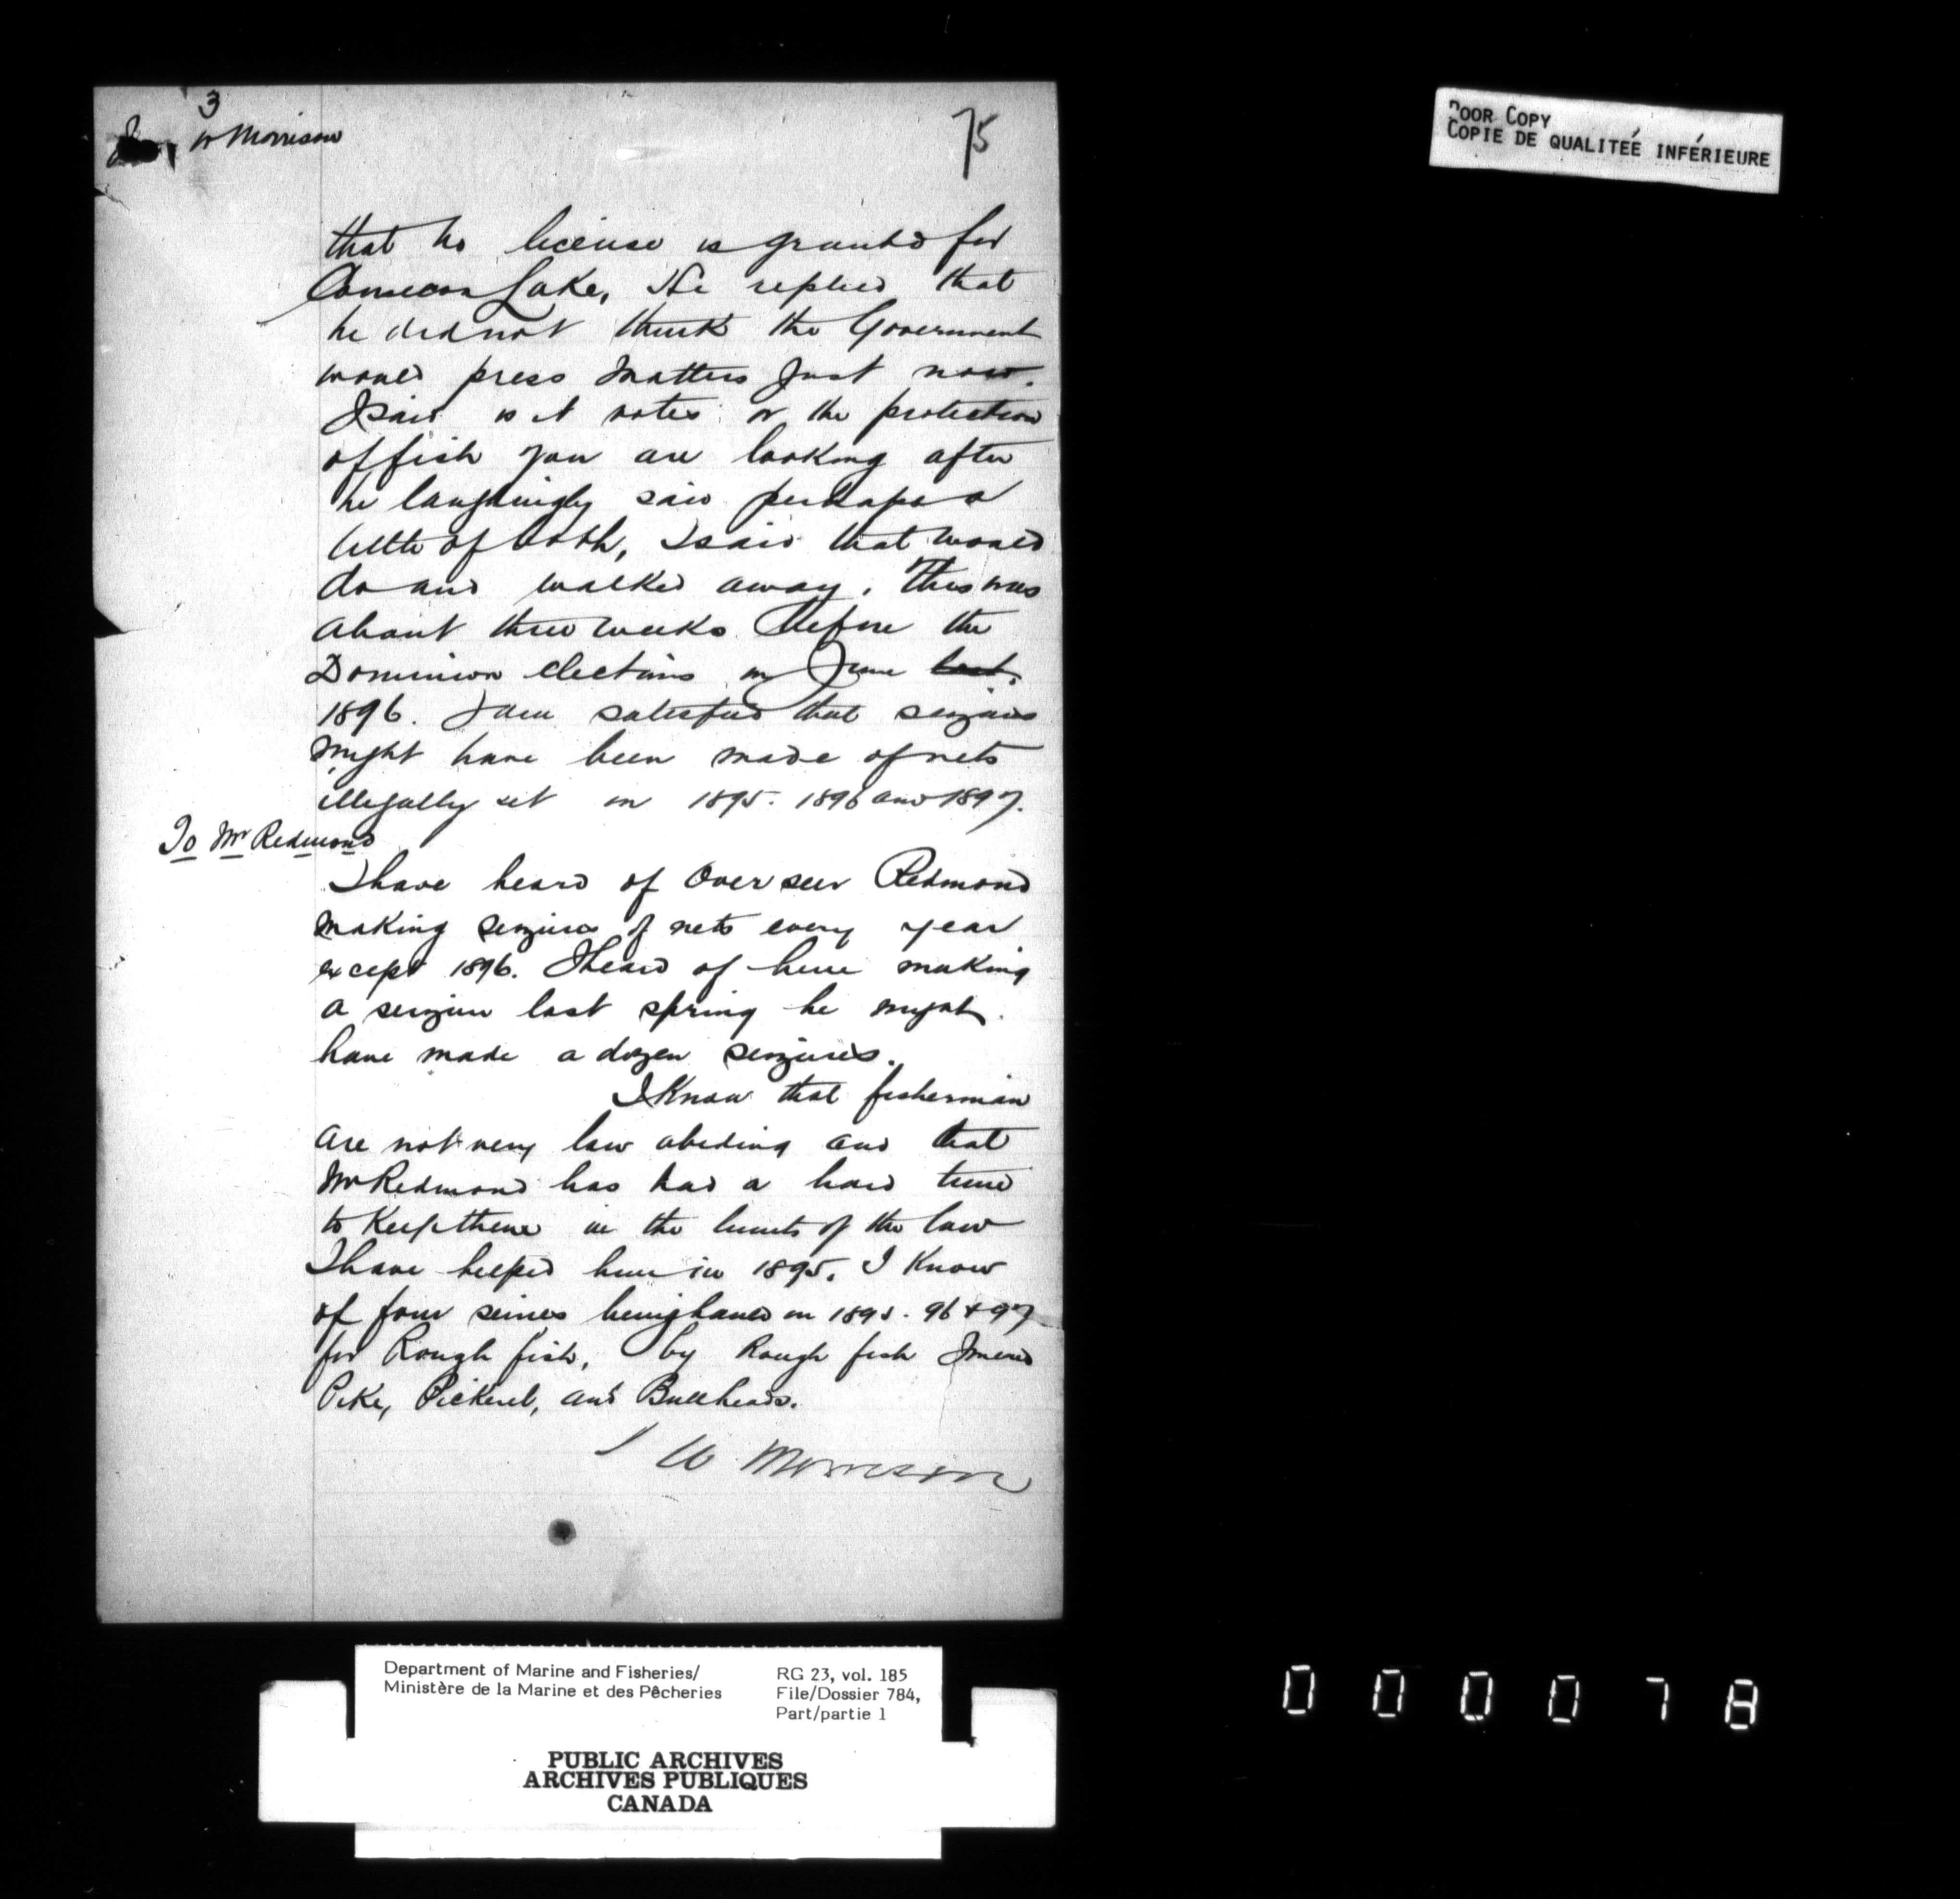 3
W Morrison
75
POOR COPY
COPIE DE QUALITEÉ INFÉRIEURE
that no license is granted for
Consecon Lake, He replied that
he did not think the Government
would press matters Just now.
I said is it votes or the protection
of fish you are looking after
he laughingly said perhaps a
little of both, I said that would
do and walked away. This was
about three weeks before the
Dominion elections in June last.
1896. I am satisfied that seizures
might have been made of nets
illegally set in 1895. 1896 and 1897.
To Mr Redmond
I have heard of Overseer Redmond
making seizures of nets every year
except 1896. I heard of him making
a seizure last spring he might
have made a dozen seizures.
I Know that fisherman
are not very law abiding and that
Mr Redmond has had a hard time
to Keep them in the limits of the law
I have helped him in 1895. I Know
of four seines being hauled in 1895. 96 & 97
for Rough fish, by Rough fish I mean
Pike, Pickerel, and Bullheads.
W Morrison
Department of Marine and Fisheries/
Ministère de la Marine et des Pêcheries
RG 23, vol. 185
File/Dossier 784,
Part/partie 1
PUBLIC ARCHIVES
ARCHIVES PUBLIQUES
CANADA
000078